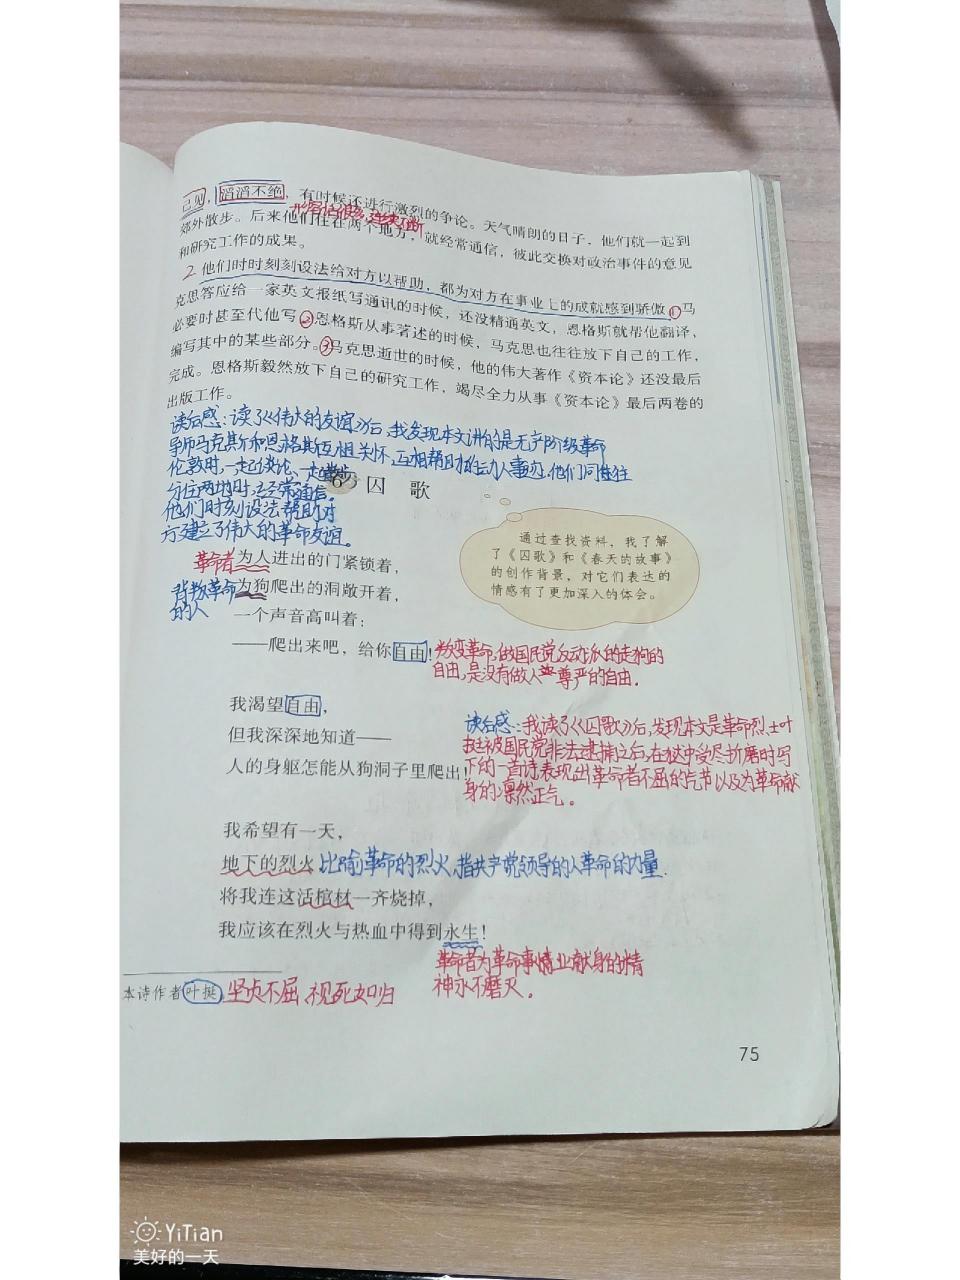 己见，滔滔不绝，有时候还进行激烈的争论。天气晴朗的日子，他们就一起到
形容话很多，连续不断
郊外散步。后来他们住在两个地方，就经常通信，彼此交换对政治事件的意见
和研究工作的成果。
2 他们时时刻刻设法给对方以帮助，都为对方在事业上的成就感到骄傲①马
克思答应给一家英文报纸写通讯的时候，还没精通英文，恩格斯就帮他翻译，
必要时甚至代他写②恩格斯从事著述的时候，马克思也往往放下自己的工作，
编写其中的某些部分。③马克思逝世的时候，他的伟大著作《资本论》还没最后
完成。恩格斯毅然放下自己的研究工作，竭尽全力从事《资本论》最后两卷的
出版工作。
读后感：读了《伟大的友谊》后，我发现本文讲的是无产阶级革命
导师马克斯和恩格斯互相关怀，互相帮助的动人事迹，他们同住
伦敦时，一起谈论、一起散步
分住两地时，已经常通信。
他们时刻设法帮助对
方建立了伟大的革命友谊。
6 囚 歌
通过查找资料，我了解
了《囚歌》和《春天的故事》
的创作背景，对它们表达的
情感有了更加深入的体会。
革命者为人进出的门紧锁着，
背叛革命为狗爬出的洞敞开着，
的人
一个声音高叫着：
——爬出来吧，给你自由！叛变革命，做国民党反动派的走狗的
自由，是没有做人尊严的自由．
我渴望自由，
但我深深地知道——
人的身躯怎能从狗洞子里爬出！
读后感：我读了《囚歌》后，发现本文是革命烈士叶
挺被国民党非法逮捕之后，在狱中受尽折磨时写
下的一首诗表现出革命者不屈的气节以及为革命献
身的凛然正气。
我希望有一天，
地下的烈火，比喻革命的烈火，指共产党领导的人革命的力量．
将我连这活棺材一齐烧掉，
我应该在烈火与热血中得到永生！
革命者为革命事情业献身的精
神永不磨灭．
本诗作者叶挺。坚贞不屈、视死如归
75
YiTian
美好的一天